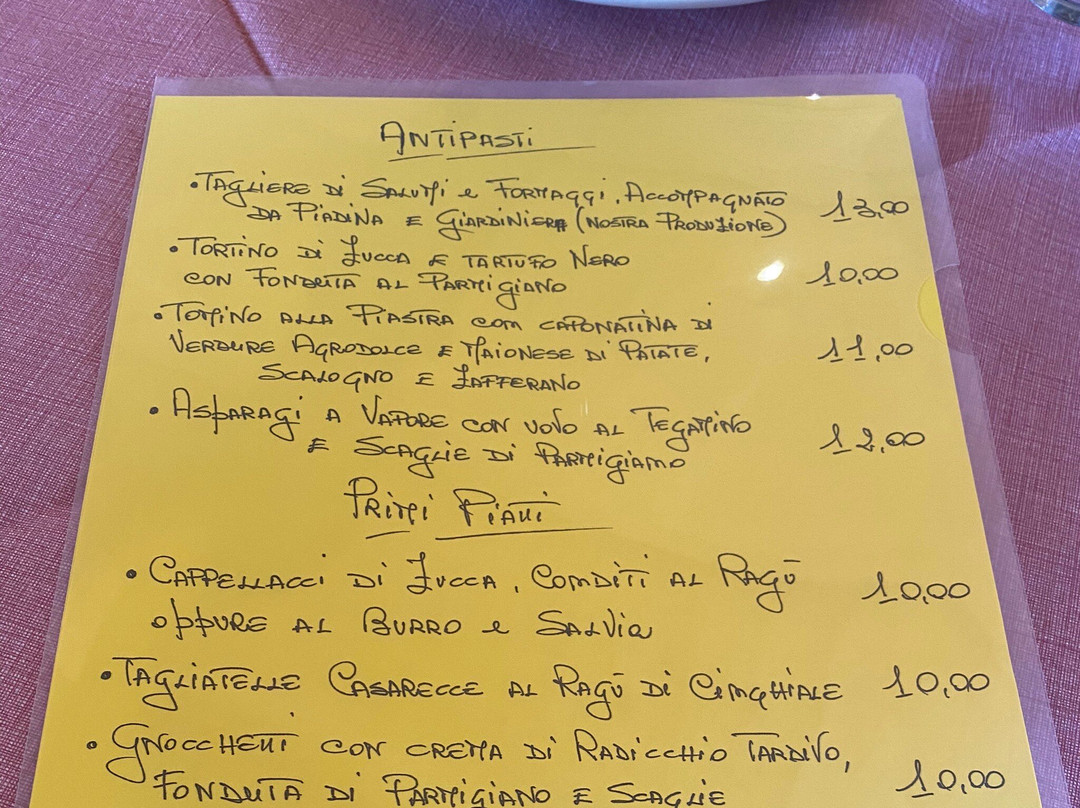 ANTIPASTI
• TAGLIERE DI SALUMI e FORMAGGI, ACCOMPAGNATO 13,00
DA PIADINA E GIARDINIERA (NOSTRA PRODUZIONE)
• TORTINO DI ZUCCA E TARTUFO NERO
CON FONDUTA AL PARMIGIANO 10,00
• TOMINO ALLA PIASTRA CON CAPONATINA DI
VERDURE AGRODOLCE E MAIONESE DI PATATE, 11,00
SCALOGNO E ZAFFERANO
• ASPARAGI A VAPORE CON UOVO AL TEGAMINO
E SCAGLIE DI PARMIGIANO 12,00
PRIMI PIATTI
• CAPPELLACCI DI ZUCCA, CONDITI AL RAGÙ 10,00
OPPURE AL BURRO e SALVIA
• TAGLIATELLE CASARECCE AL RAGÙ DI CINGHIALE 10,00
• GNOCCHETTI CON CREMA DI RADICCHIO TARDIVO,
FONDUTA DI PARMIGIANO E SCAGLIE 10,00